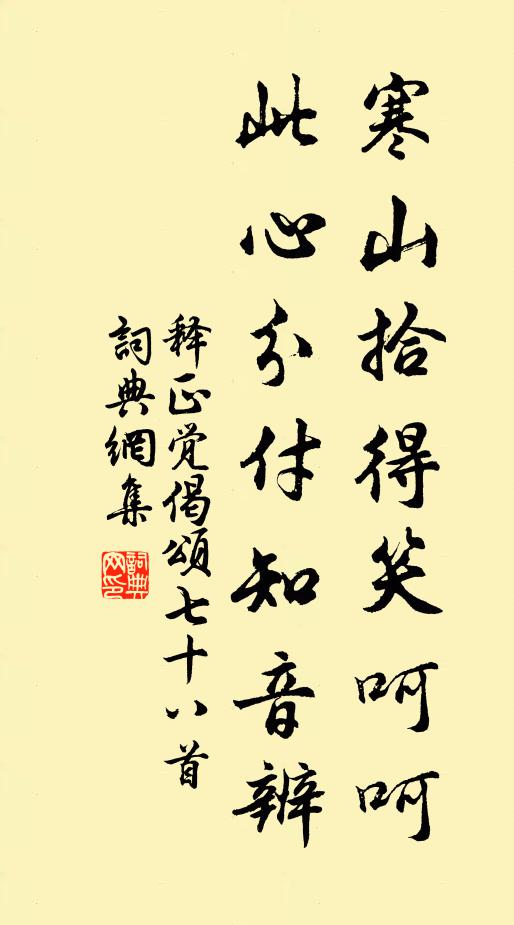 寒山拾得笑呵呵
此心分付知音辨
释正觉偈頌七十八首
詞典網集
詞典
网印